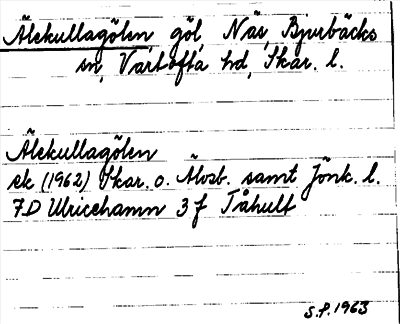 Älekullagölen göl, Näs, Bjurbäcks
sn, Vartofta hd, Skar. l.
Älekullagölen
ek (1962) Skar. o. Älvsb. samt Jönk. l.
7D Ulricehamn 3 f Tåhult
S.P. 1963